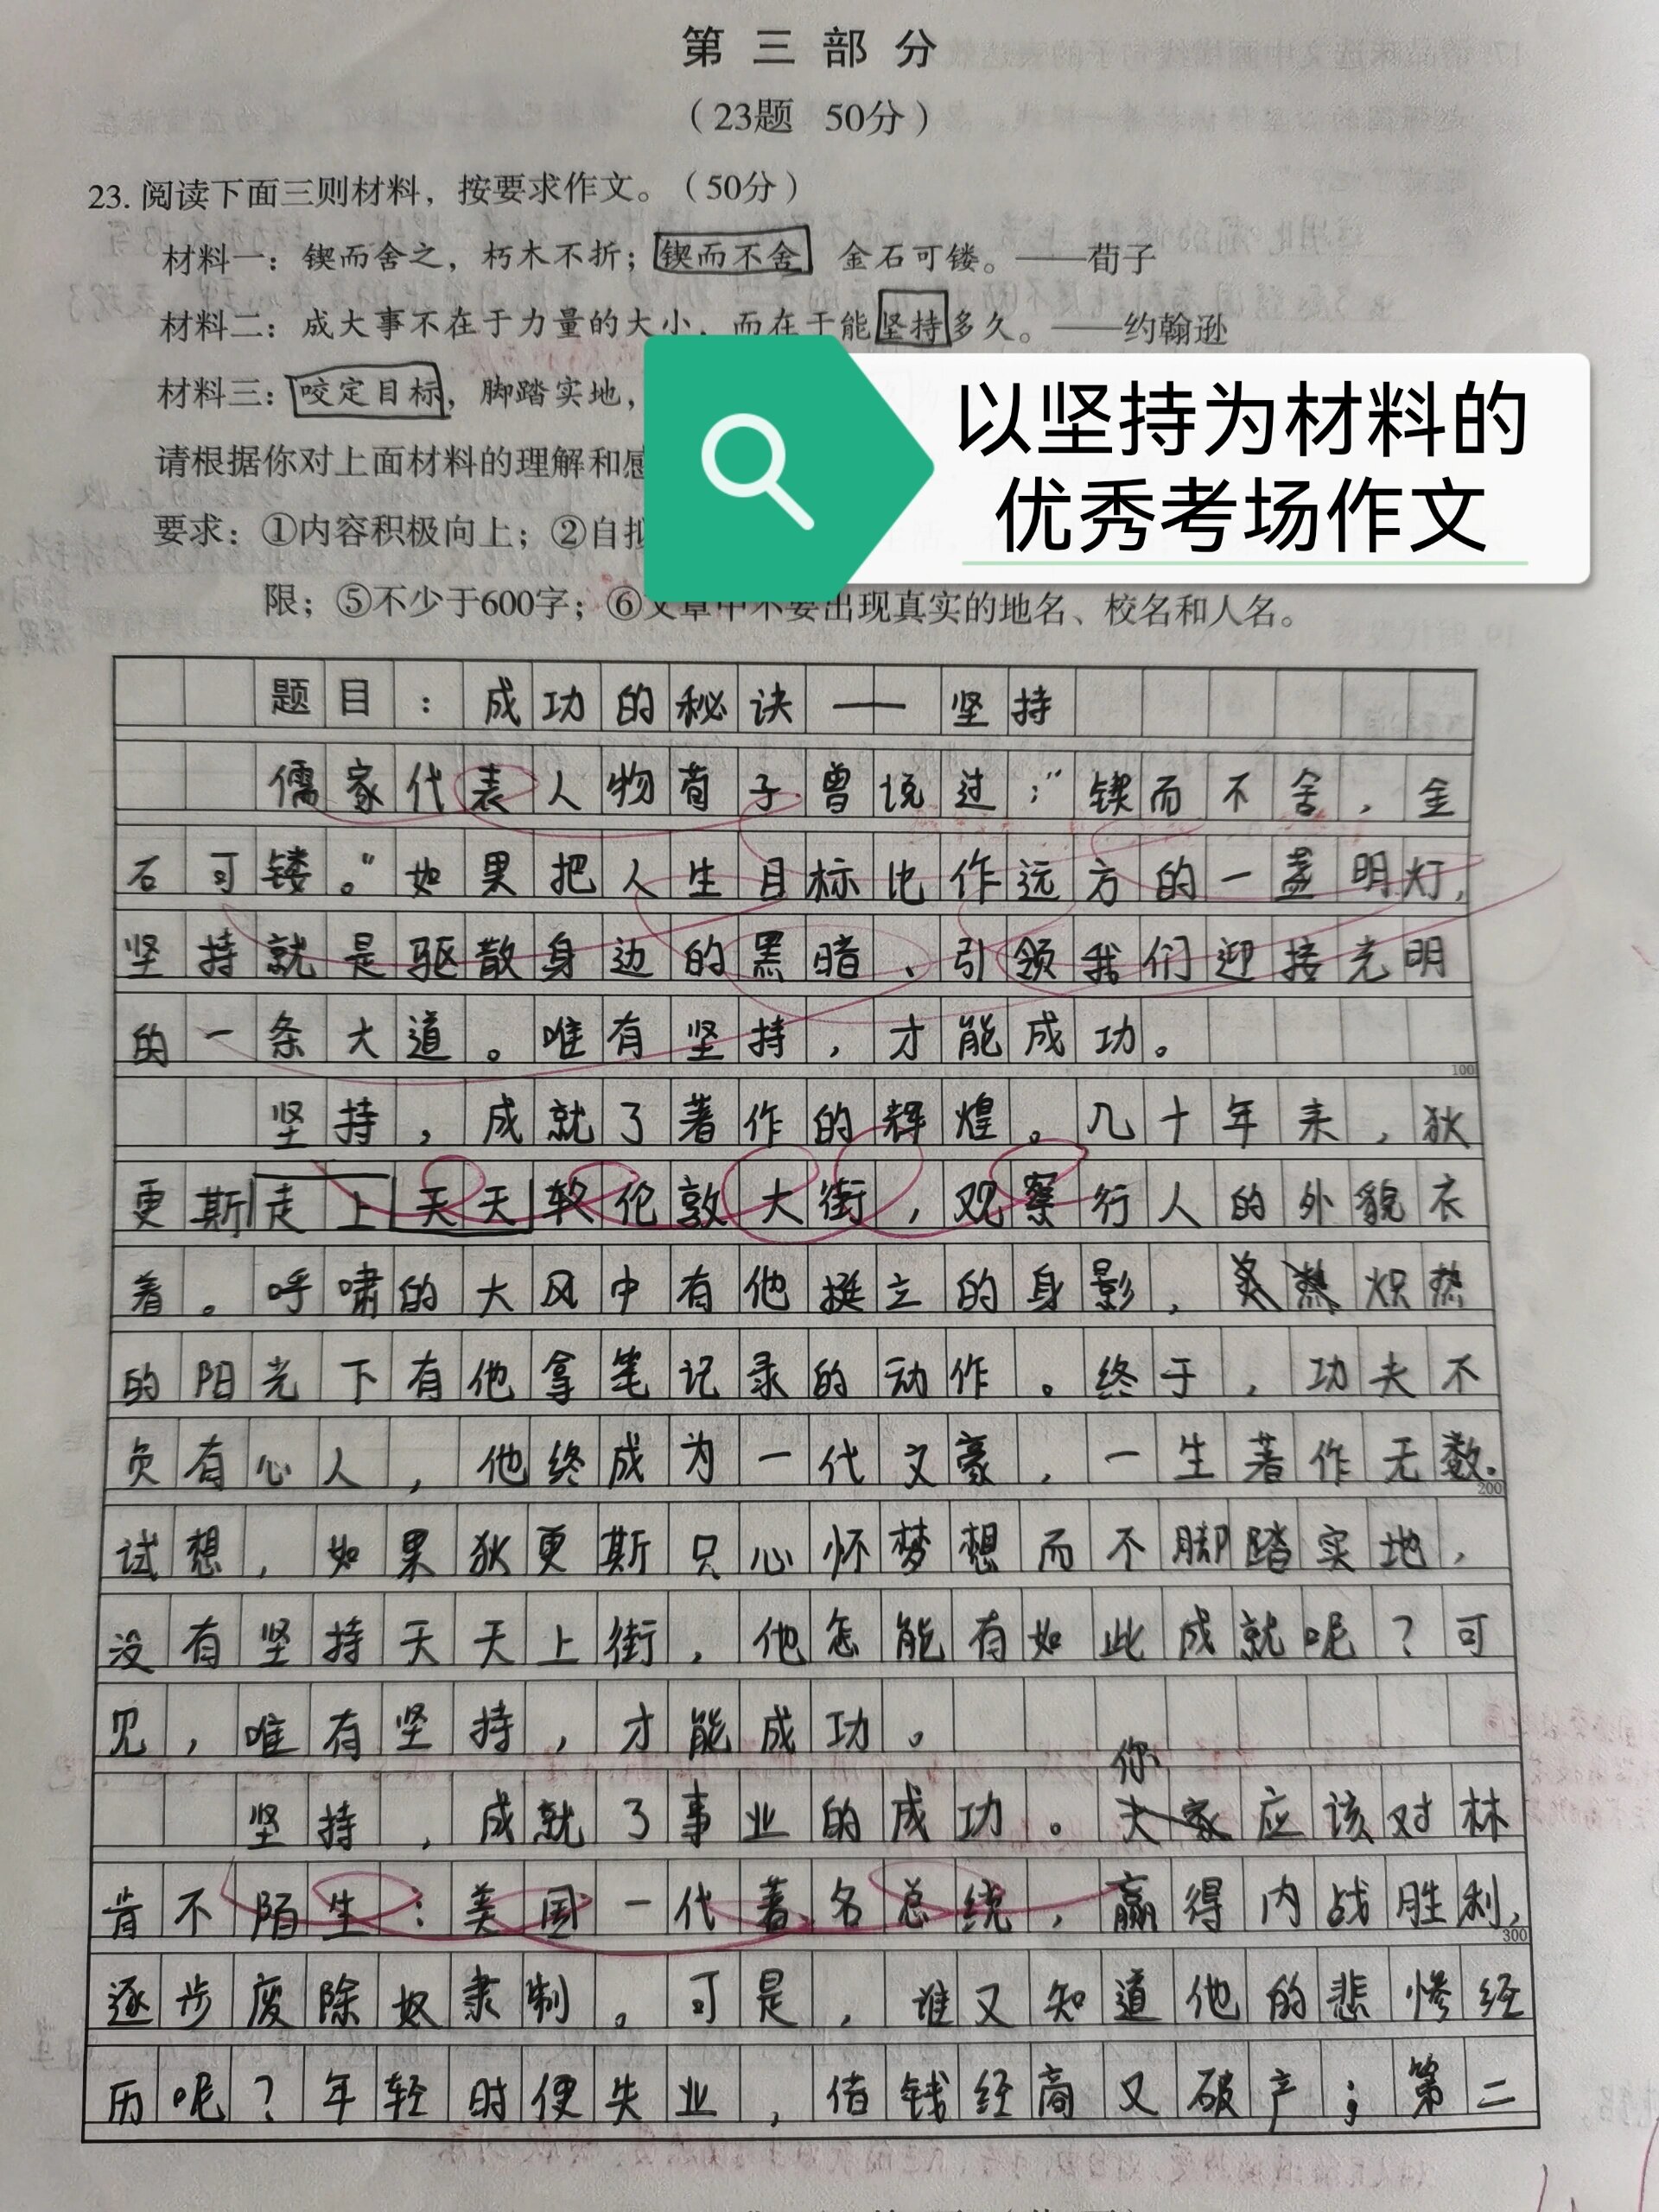 第三部分
（23题 50分）
23. 阅读下面三则材料，按要求作文。（50分）
材料一：锲而舍之，朽木不折；锲而不舍 金石可镂。——荀子
材料二：成大事不在于力量的大小，而在于能坚持多久。——约翰逊
材料三：咬定目标，脚踏实地，
以坚持为材料的
优秀考场作文
请根据你对上面材料的理解和感
要求：①内容积极向上；②自拟
限；⑤不少于600字；⑥文章中不要出现真实的地名、校名和人名。
题目：成功的秘诀——坚持
儒家代表人物荀子曾说过："锲而不舍，金
石可镂。"如果把人生目标比作远方的一盏明灯，
坚持就是驱散身边的黑暗、引领我们迎接光明
的一条大道。唯有坚持，才能成功。
100
坚持，成就了著作的辉煌。几十年来，狄
更斯走上天天伦敦大街，观察行人的外貌衣
着。呼啸的大风中有他挺立的身影，炽热
的阳光下有他拿笔记录的动作。终于，功夫不
负有心人，他终成为一代文豪，一生著作无数。
200
试想，如果狄更斯只心怀梦想而不脚踏实地，
没有坚持天天上街，他怎能有如此成就呢？可
见，唯有坚持，才能成功。
你
坚持，成就了事业的成功。大家应该对林
肯不陌生：美国一代著名总统，赢得内战胜利，
300
逐步废除奴隶制。可是，谁又知道他的悲惨经
历呢？年轻时便失业，借钱经商又破产；第二